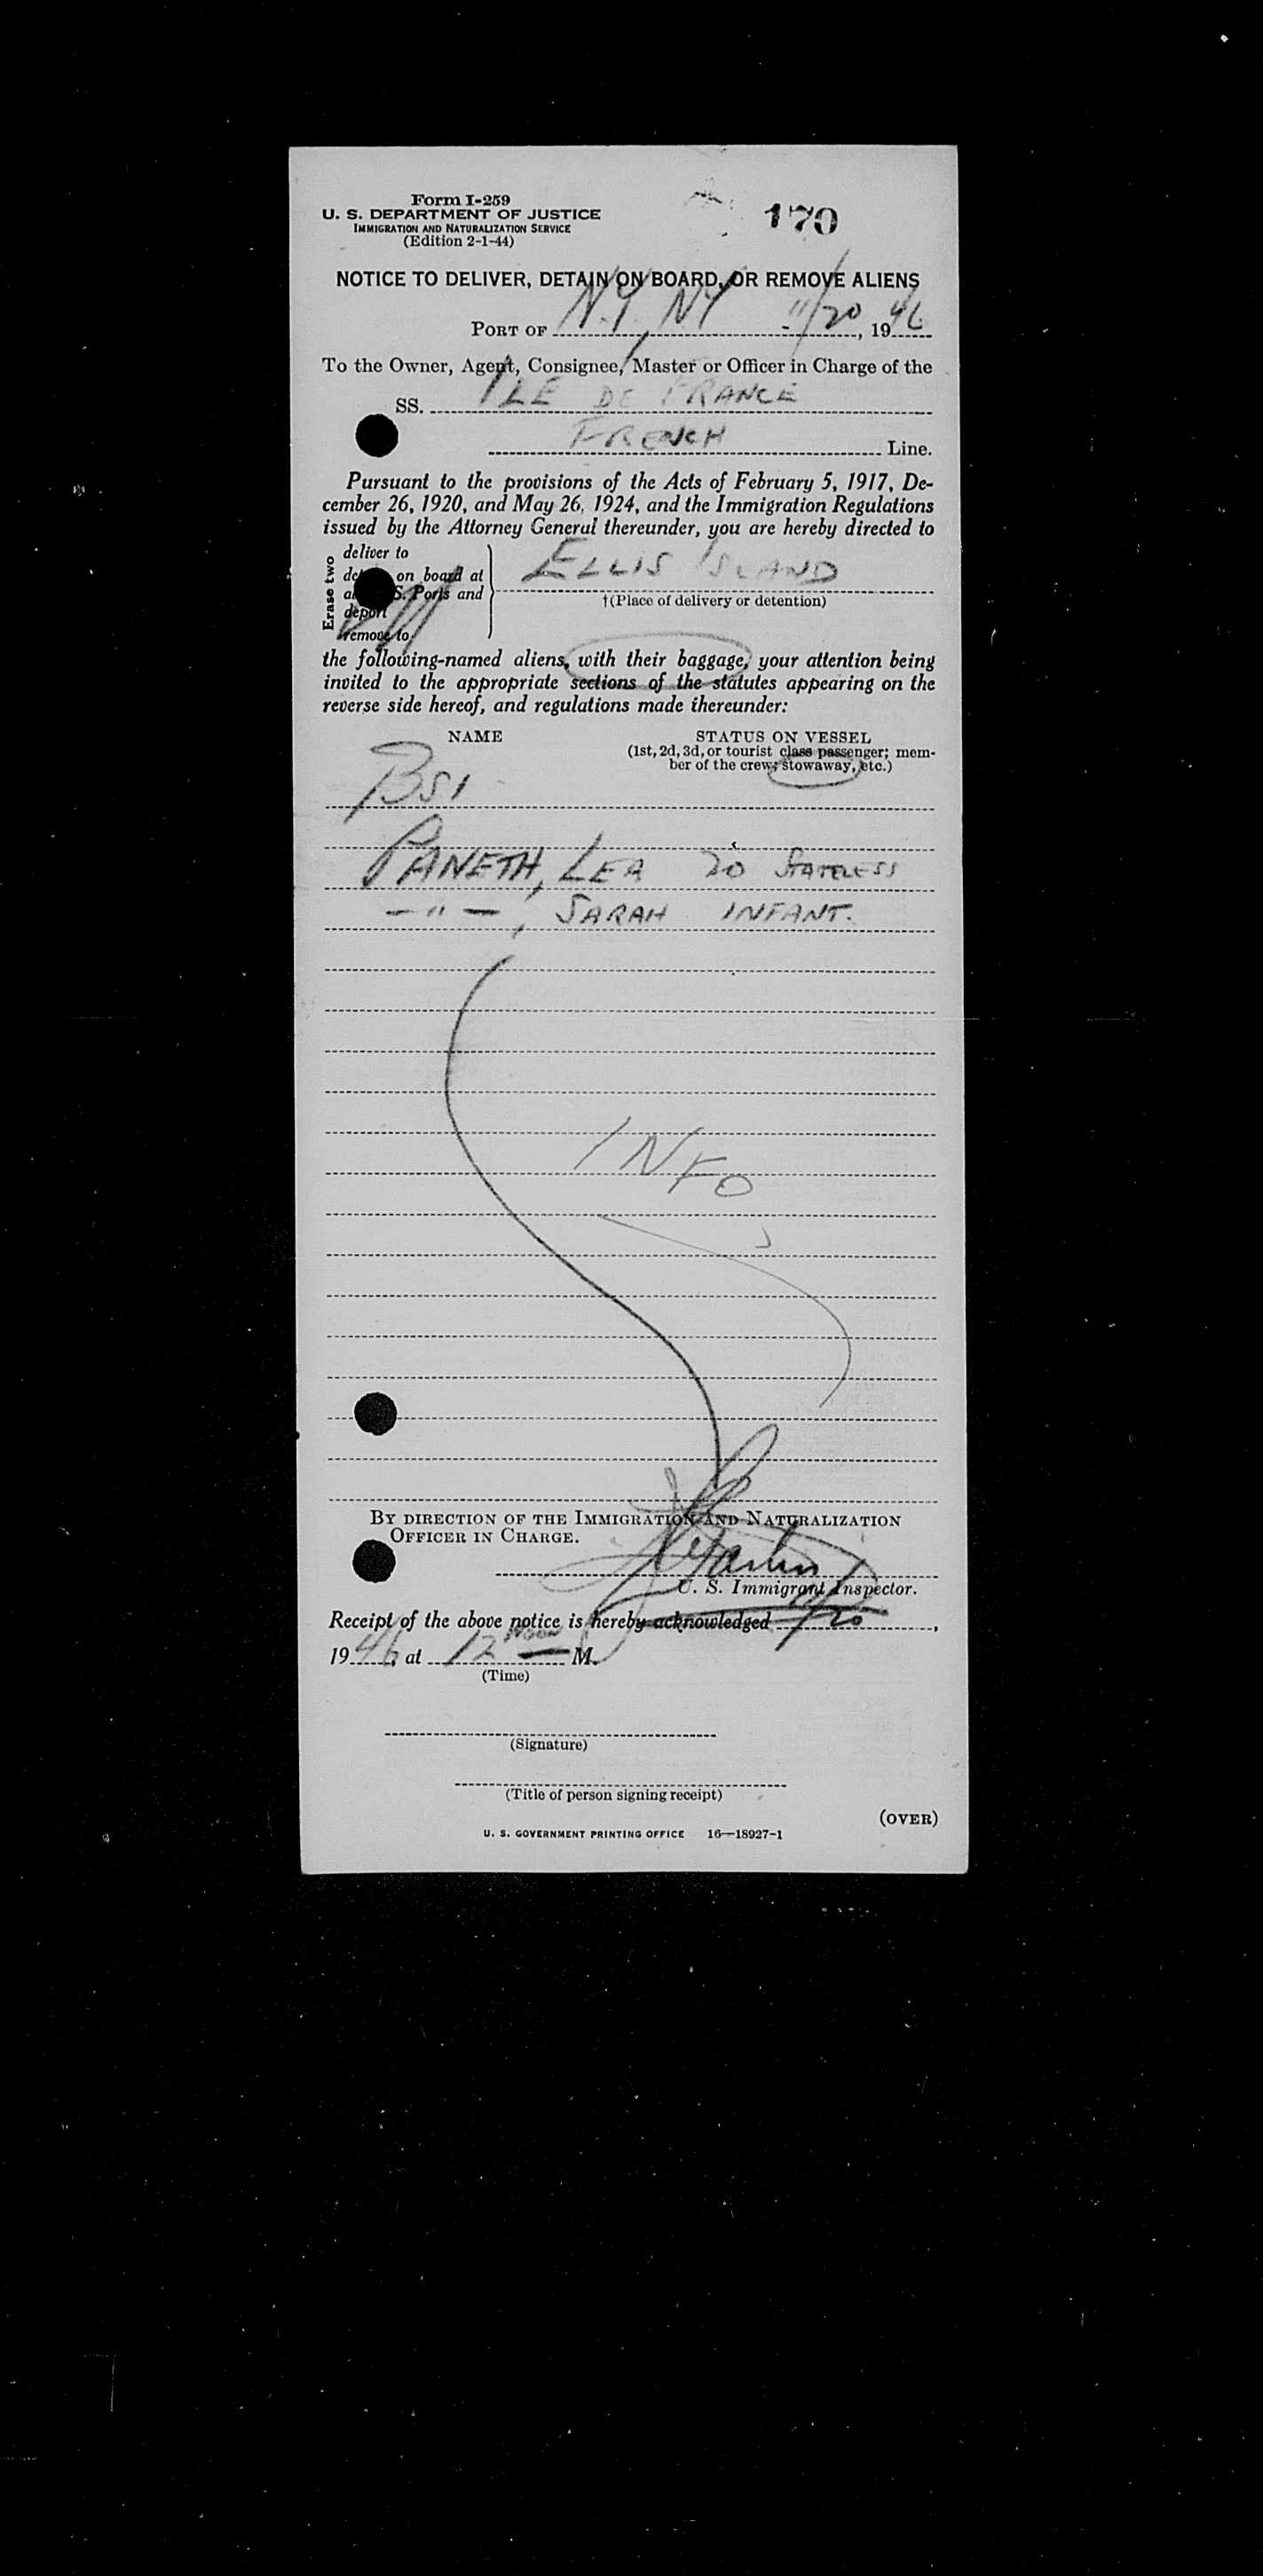 Form I-259
U. S. DEPARTMENT OF JUSTICE
IMMIGRATION AND NATURALIZATION SERVICE
(Edition 2-1-44)
170
NOTICE TO DELIVER, DETAIN ON BOARD, OR REMOVE ALIENS
PORT OF N.Y. NY - 11/20, 1946
To the Owner, Agent, Consignee, Master or Officer in Charge of the
SS. ILE DE FRANCE
FRENCH Line.
Pursuant to the provisions of the Acts of February 5, 1917, De-
cember 26, 1920, and May 26, 1924, and the Immigration Regulations
issued by the Attorney General thereunder, you are hereby directed to
Erase two
deliver to
on board at
S. Ports and
deport
remove to
ELLIS ISLAND
†(Place of delivery or detention)
the following-named aliens, with their baggage, your attention being
invited to the appropriate sections of the statutes appearing on the
reverse side hereof, and regulations made thereunder:
NAME STATUS ON VESSEL
(1st, 2d, 3d, or tourist class passenger; mem-
ber of the crew; stowaway, etc.)
BSI
PANETH, LEA 20 STATELESS
— " — , SARAH INFANT.
INFO
BY DIRECTION OF THE IMMIGRATION AND NATURALIZATION
OFFICER IN CHARGE.
U. S. Immigrant Inspector.
Receipt of the above notice is hereby acknowledged /20,
1946, at 12 Noon M.
(Time)
(Signature)
(Title of person signing receipt)
(OVER)
U. S. GOVERNMENT PRINTING OFFICE 16—18927-1